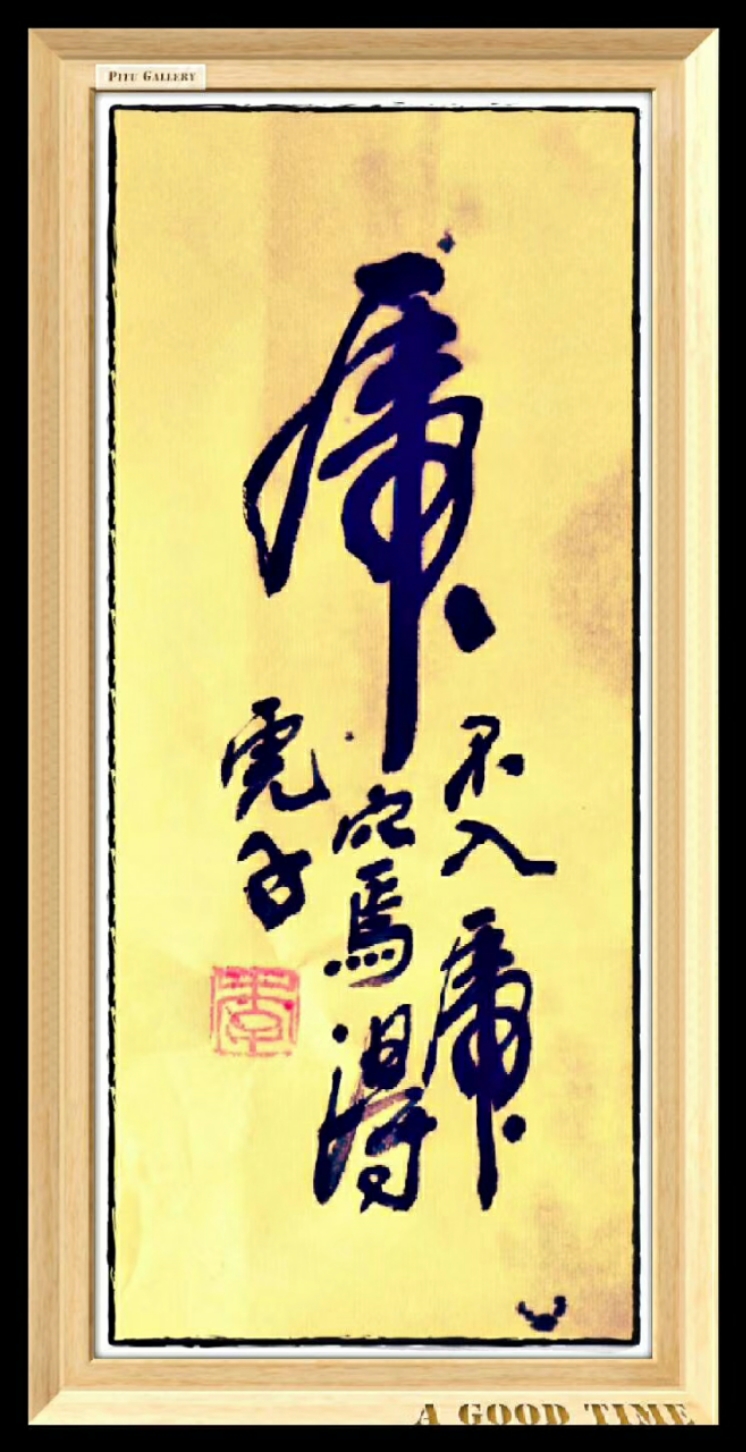 PITU GALLERY
虎
不入虎
穴焉得
虎子
A GOOD TIME